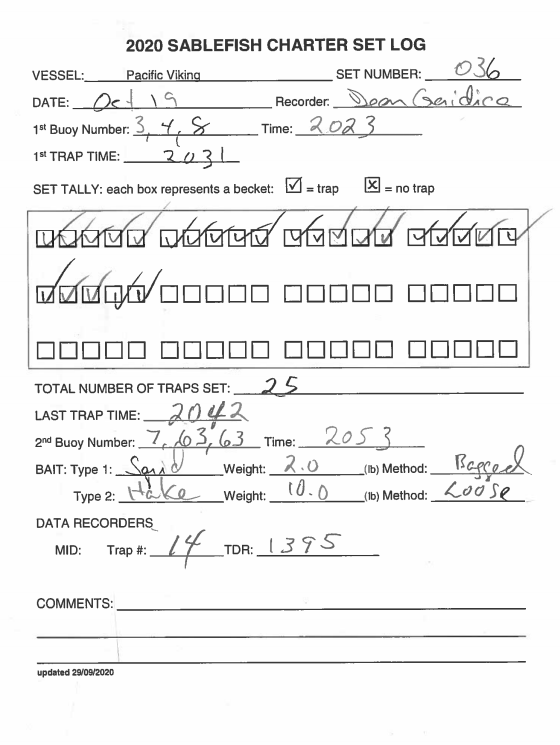 2020 SABLEFISH CHARTER SET LOG
VESSEL: Pacific Viking SET NUMBER: 036
DATE: Oct 19 Recorder: Dean
1st Buoy Number: 3, 4, 8 Time: 2023
1st TRAP TIME: 2031
SET TALLY: each box represents a becket: ☑ = trap ☒ = no trap
TOTAL NUMBER OF TRAPS SET: 25
LAST TRAP TIME: 2042
2nd Buoy Number: 7, 63, 63 Time: 2053
BAIT: Type 1: Squid Weight: 2.0 (lb) Method: Bagged
Type 2: Hake Weight: 10.0 (lb) Method: Loose
DATA RECORDERS
MID: Trap #: 14 TDR: 1395
COMMENTS:
updated 29/09/2020